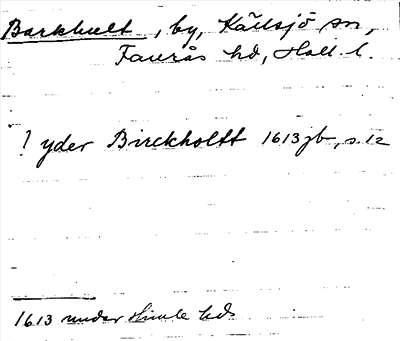 Barkhult, by, Källsjö sn,
Faurås hd, Hall. l.
? yder Birckholtt 1613 jb, s. 12
1613 under Himle hd